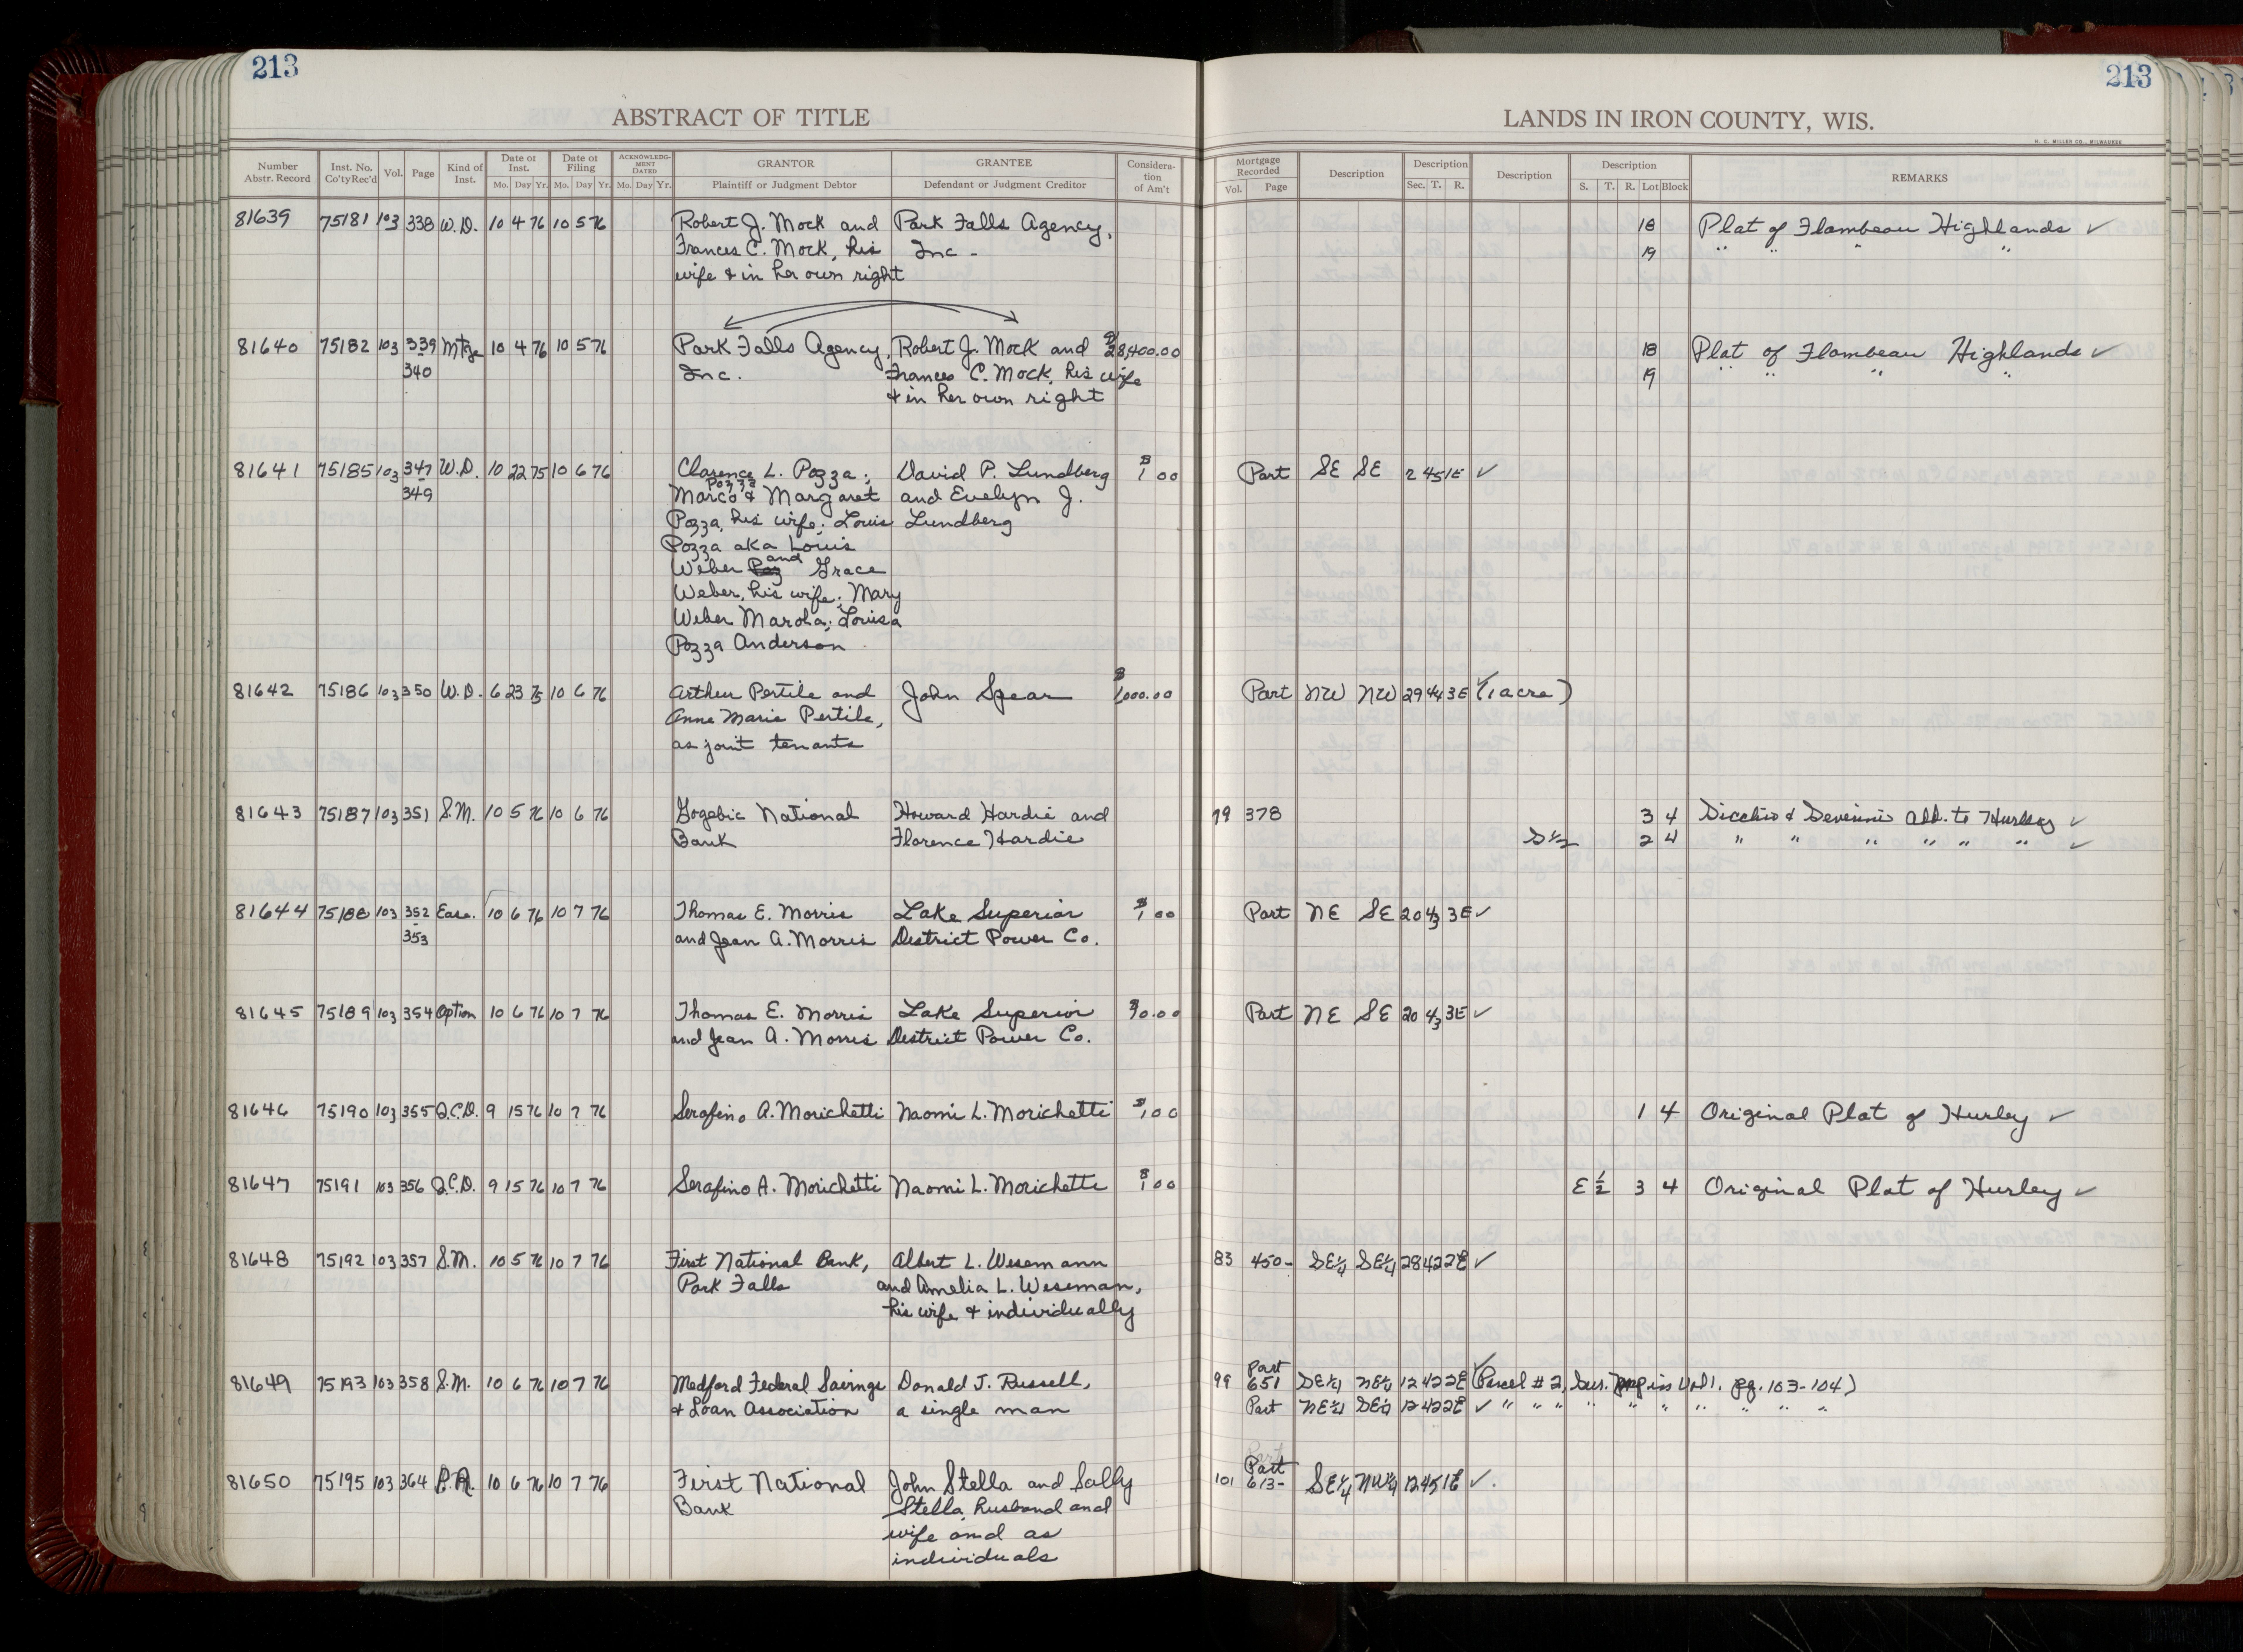 213
213
ABSTRACT OF TITLE
LANDS IN IRON COUNTY, WIS.
H. C. MILLER CO., MILWAUKEE
Number Abstr. Record Inst. No. Co'ty Rec'd Vol. Page Kind of Inst. Date of Inst. Mo. Day Yr. Date of Filing Mo. Day Yr. ACKNOWLEDGMENT DATED Mo. Day Yr. GRANTOR Plaintiff or Judgment Debtor GRANTEE Defendant or Judgment Creditor Consideration of Am't
Mortgage Recorded Vol. Page Description Description Sec. T. R. Description Description S. T. R. Lot Block REMARKS
81639 75181 103 338 W.D. 10 4 76 10 5 76 Robert J. Mock and Park Falls Agency, 18 Plat of Flambeau Highlands ✓
Frances C. Mock, his Inc - 19 " " " "
wife & in her own right
81640 75182 103 339 Mtge 10 4 76 10 5 76 Park Falls Agency, Robert J. Mock and $28,400.00 18 Plat of Flambeau Highlands ✓
340 Inc. Frances C. Mock, his wife 19 " " " "
& in her own right
81641 75185 103 347 W.D. 10 22 75 10 6 76 Clarence L. Pozza; David P. Lundberg $1 00 Part SE SE 2 45 1E ✓
- 349 Marco Pozza & Margaret and Evelyn J.
Pozza, his wife; Louis Lundberg
Pozza aka Louis
Weber and Grace
Weber, his wife; Mary
Weber Marola; Louisa
Pozza Anderson
81642 75186 103 350 W.D. 6 23 75 10 6 76 Arthur Pertile and John Spear $1,000.00 Part NW NW 29 44 3E ✓ (1 acre)
Anne Marie Pertile,
as joint tenants
81643 75187 103 351 S.M. 10 5 76 10 6 76 Gogebic National Howard Hardie and 79 378 3 4 Sicchio & Severini Add. to Hurley ✓
Bank Florence Hardie S½ 2 4 " " " " " " ✓
81644 75188 103 352 Ease. 10 6 76 10 7 76 Thomas E. Morris Lake Superior $1 00 Part NE SE 20 43 3E ✓
- 353 and Jean A. Morris District Power Co.
81645 75189 103 354 Option 10 6 76 10 7 76 Thomas E. Morris Lake Superior $10.00 Part NE SE 20 43 3E ✓
and Jean A. Morris District Power Co.
81646 75190 103 355 Q.C.D. 9 15 76 10 7 76 Serafino A. Morichetti Naomi L. Morichetti $1 00 1 4 Original Plat of Hurley ✓
81647 75191 103 356 Q.C.D. 9 15 76 10 7 76 Serafino A. Morichetti Naomi L. Morichetti $1 00 E ½ 3 4 Original Plat of Hurley ✓
81648 75192 103 357 S.M. 10 5 76 10 7 76 First National Bank, Albert L. Wesemann 83 450- SE¼ SE¼ 28 42 2E ✓
Park Falls and Amelia L. Weseman,
his wife & individually
Part ✓
81649 75193 103 358 S.M. 10 6 76 10 7 76 Medford Federal Savings Donald J. Russell, 99 651 SE¼ NE¼ 12 42 2E (Parcel #2, Sur. Map in Vol 1. pg. 103-104)
& Loan Association a single man Part NE¼ SE¼ 12 42 2E ✓ " " " " " " " " " "
Part
81650 75195 103 364 P.R. 10 6 76 10 7 76 First National John Stella and Sally 101 613- SE¼ NW¼ 12 45 1E ✓.
Bank Stella, husband and
wife and as
individuals